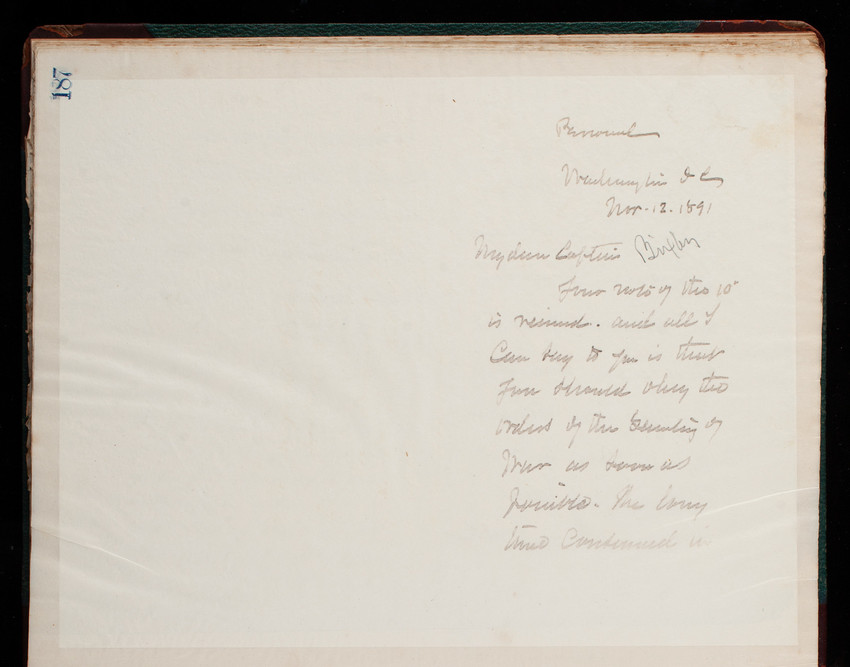 187
Personal
Washington D C
Nov. 12. 1891
My dear Captain Bixby
Your note of the 10"
is received. and all I
Can say to you is that
you should obey the
orders of the Secretary of
War as soon as
possible. The long
time Consumed in